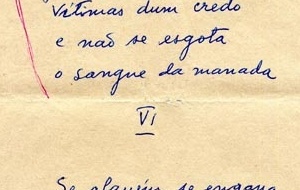 vítimas dum credo
e não se esgota
o sangue da manada
VI
Se alguém se engana